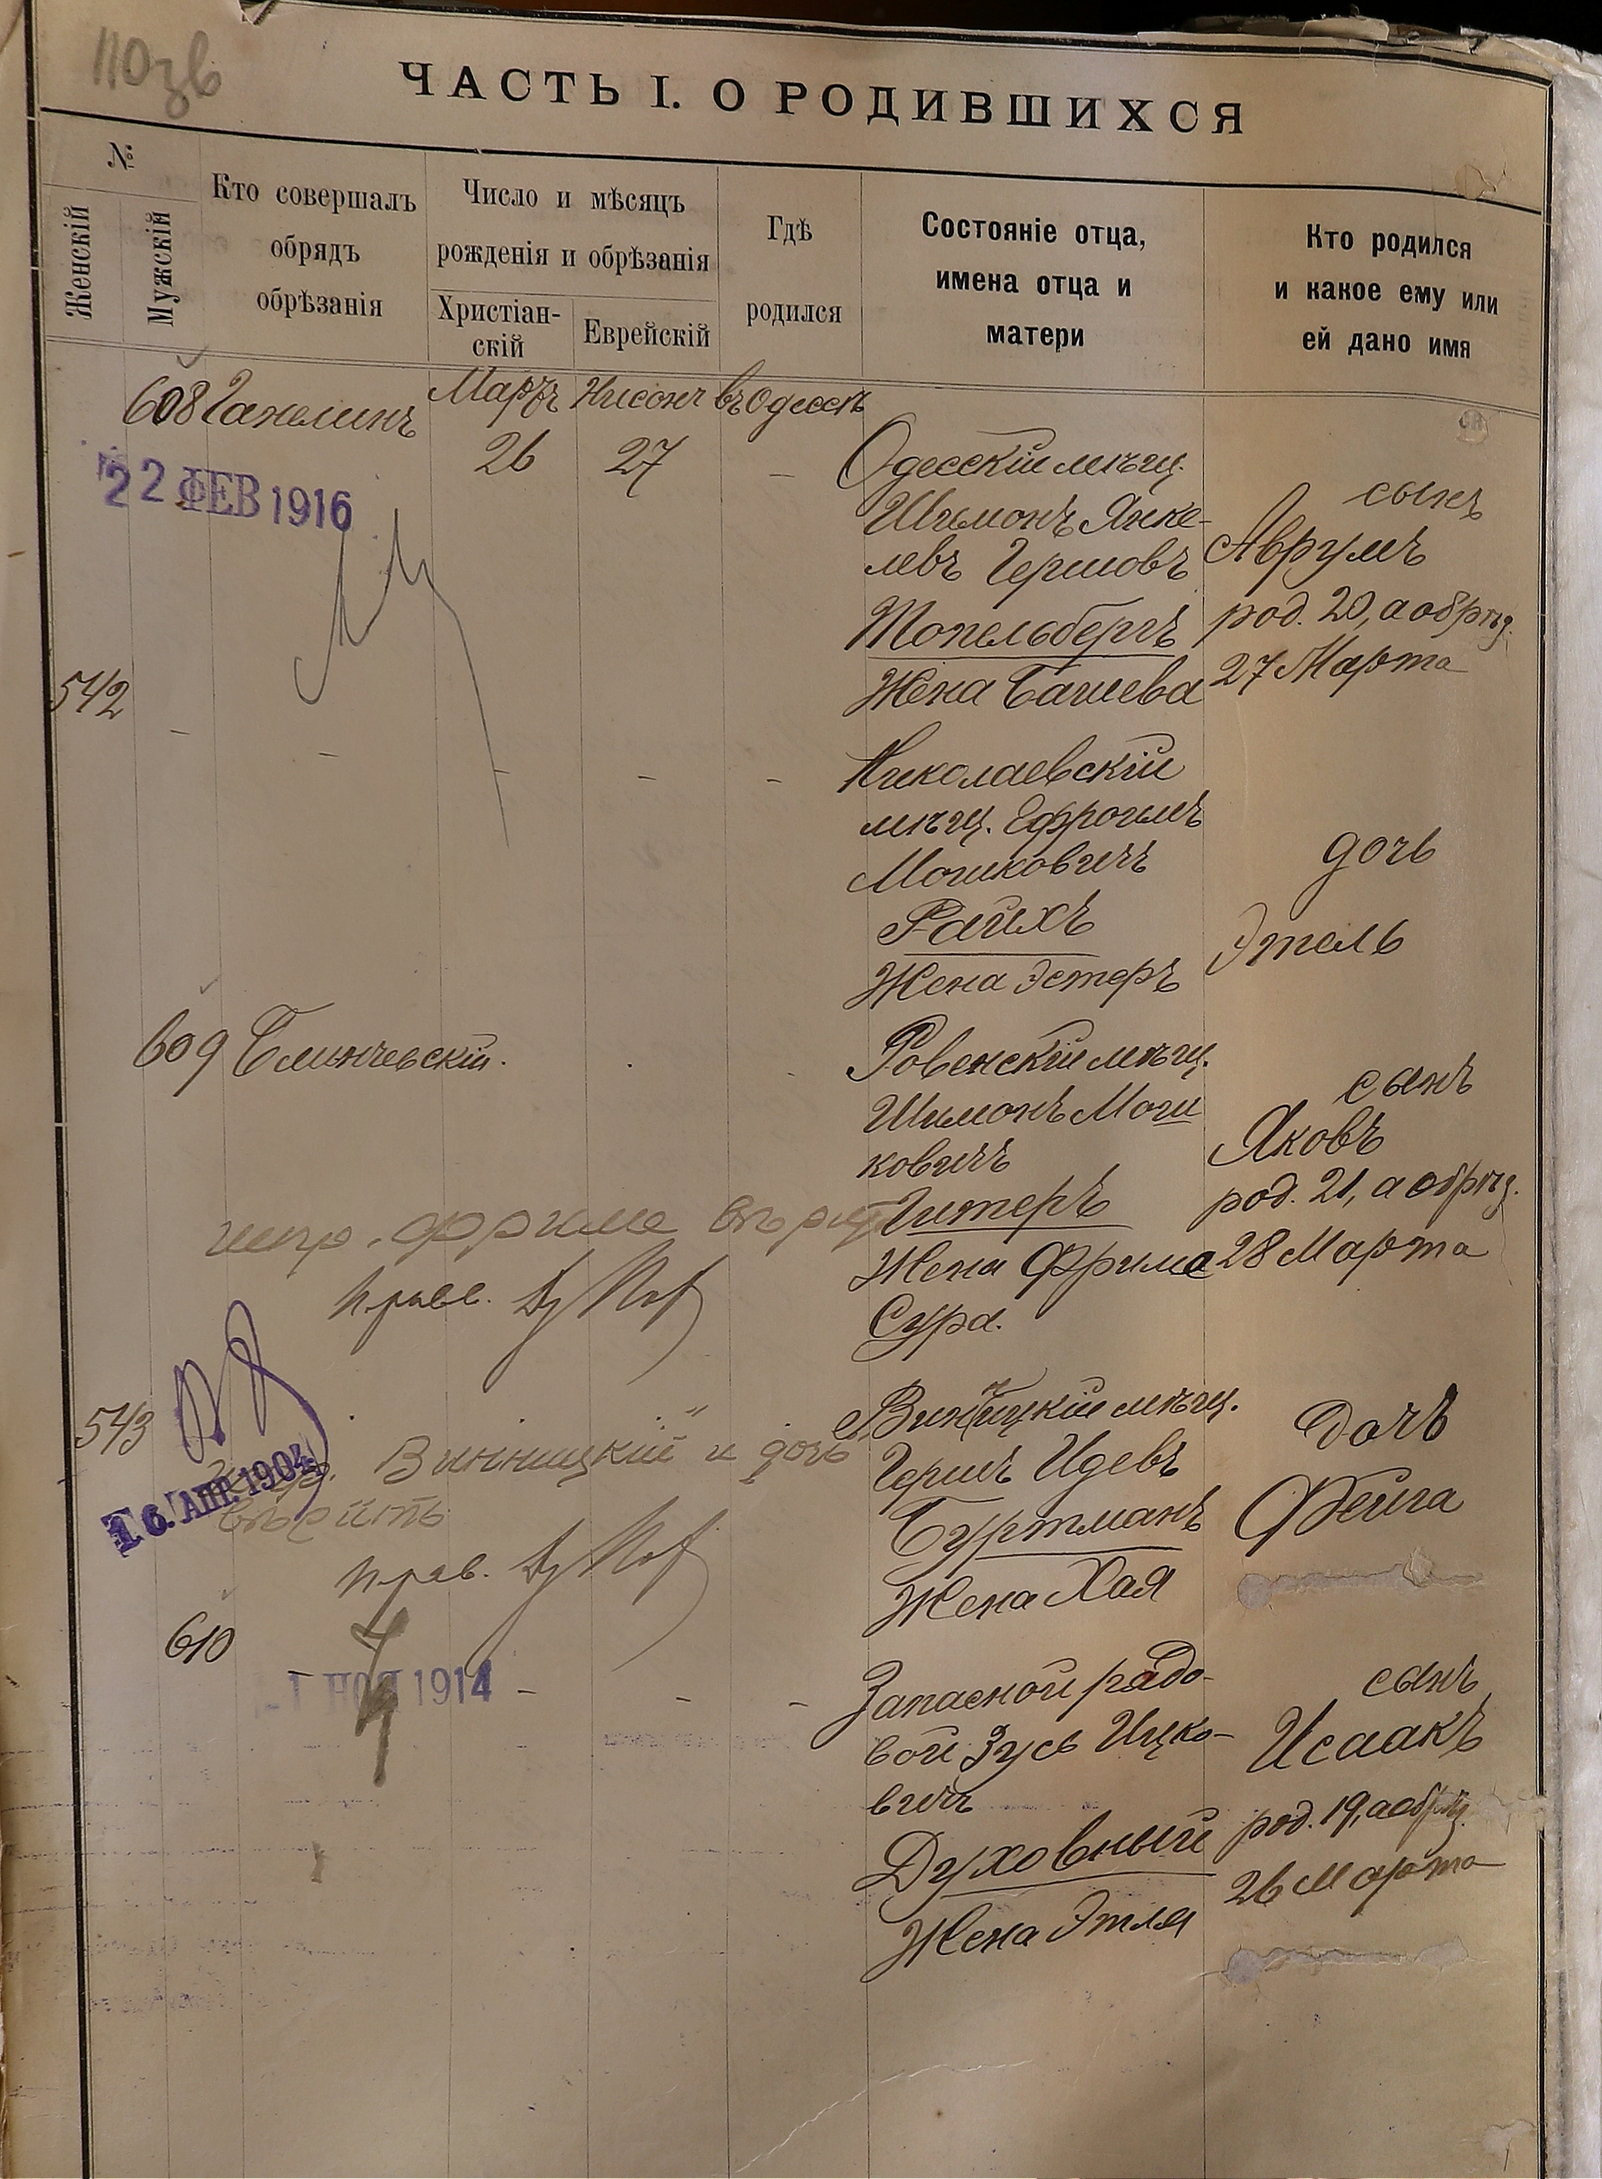 110 зв
ЧАСТЬ I. О РОДИВШИХСЯ
№.
Женскій
Мужскій
Кто совершалъ
обрядъ
обрѣзанія
Число и мѣсяцъ
рожденія и обрѣзанія
Христіан-
скій
Еврейскій
Гдѣ
родился
Состояніе отца,
имена отца и
матери
Кто родился
и какое ему или
ей дано имя
608 Гапелинъ Мартъ Нисонъ въ Одессѣ
26 27 —
22 ФЕВ 1916
Одесскій мѣщ.
Шимонъ Янке-
левъ Гершовъ
Топельбергъ
Жена Башева
сынъ
Аврумъ
род. 20, а обрѣз.
27 Марта
542 — — — — —
Николаевскій
мѣщ. Ефроимъ
Мошковичъ
Райхъ
Жена Эстеръ
дочь
Этель
609 Блинчевскій.
Ровенскій мѣщ.
Шимонъ Мош
ковичъ
Гитеръ
Жена Фрима
Сура.
сынъ
Яковъ
род. 21, а обрѣз.
28 Марта
Фрима
543
Винницкій мѣщ.
Гершъ Идевъ
Буртманъ
Жена Хая
дочь
Фейга
Винницкій и дочь
вѣрить
16 АПР. 1904
610 — — — —
1 НОЯ 1914
Запасной рядо-
вой Зусь Ицко-
вичъ
Духовный
Жена Этля
сынъ
Исаакъ
род. 19, а обрѣз.
26 Марта